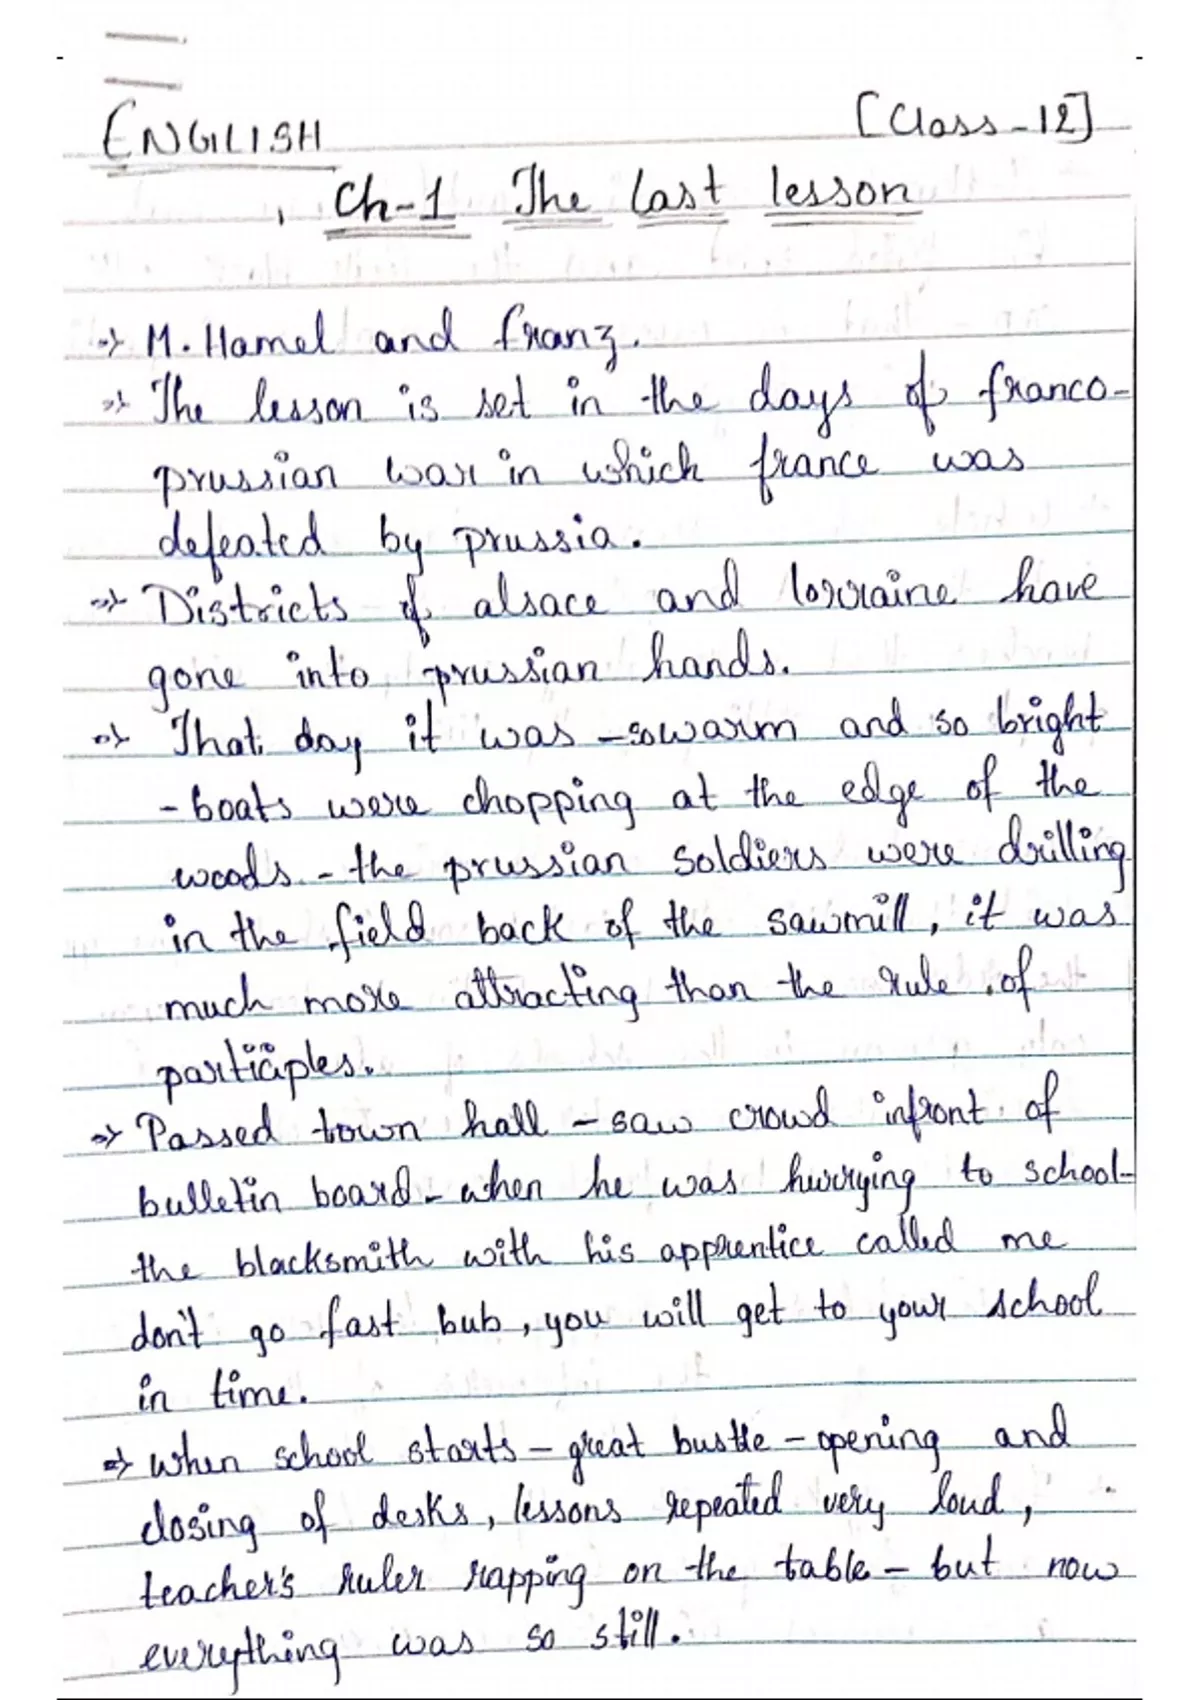 ENGLISH [Class-12]
Ch-1 The last lesson
→ M. Hamel and franz.
→ The lesson is set in the days of franco-
prussian war in which france was
defeated by prussia.
→ Districts of alsace and lorraine have
gone into prussian hands.
→ That day it was - so warm and so bright
- boats were chopping at the edge of the
woods - the prussian soldiers were drilling
in the field back of the sawmill, it was
much more attracting than the rule of
participles.
→ Passed town hall - saw crowd infront of
bulletin board - when he was hurrying to school -
the blacksmith with his apprentice called me
don't go fast bub, you will get to your school
in time.
→ When school starts - great bustle - opening and
closing of desks, lessons repeated very loud,
teacher's ruler rapping on the table - but now
everything was so still.